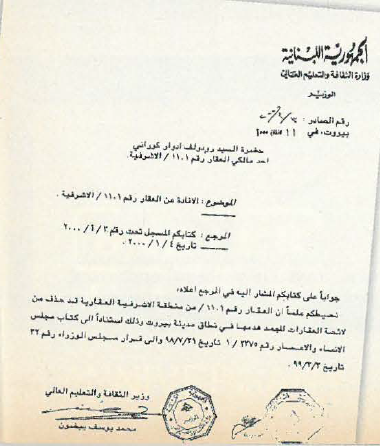 الجمهورية اللبنانية
وزارة الثقافة والتعليم العالي
الوزير
رقم الصادر :
بيروت، في ١١
حضرة السيد رودولف ادوار كوراني
احد مالكي العقار رقم ١١٠١ / الاشرفية.
الموضوع : الافادة عن العقار رقم ١١٠١ / الاشرفية .
المرجع : كتابكم المسجل تحت رقم ٣ / ٤ / ٢٠٠٠
تاريخ ٤ / ١ / ٢٠٠٠ .
جواباً على كتابكم المشار اليه في المرجع اعلاه،
نحيطكم علماً أن العقار رقم ١١٠١ / من منطقة الاشرفية العقارية قد حذف من
لائحة العقارات المجمد هدمها في نطاق مدينة بيروت وذلك استناداً الى كتاب مجلس
الانماء والاعمار رقم ٢٢٧٥ / ١ تاريخ ٩٩/٧/٢١ والى قرار مجلس الوزراء رقم ٣٢
تاريخ ٩٩/٣/٣ .
وزير الثقافة والتعليم العالي
محمد يوسف بيضون